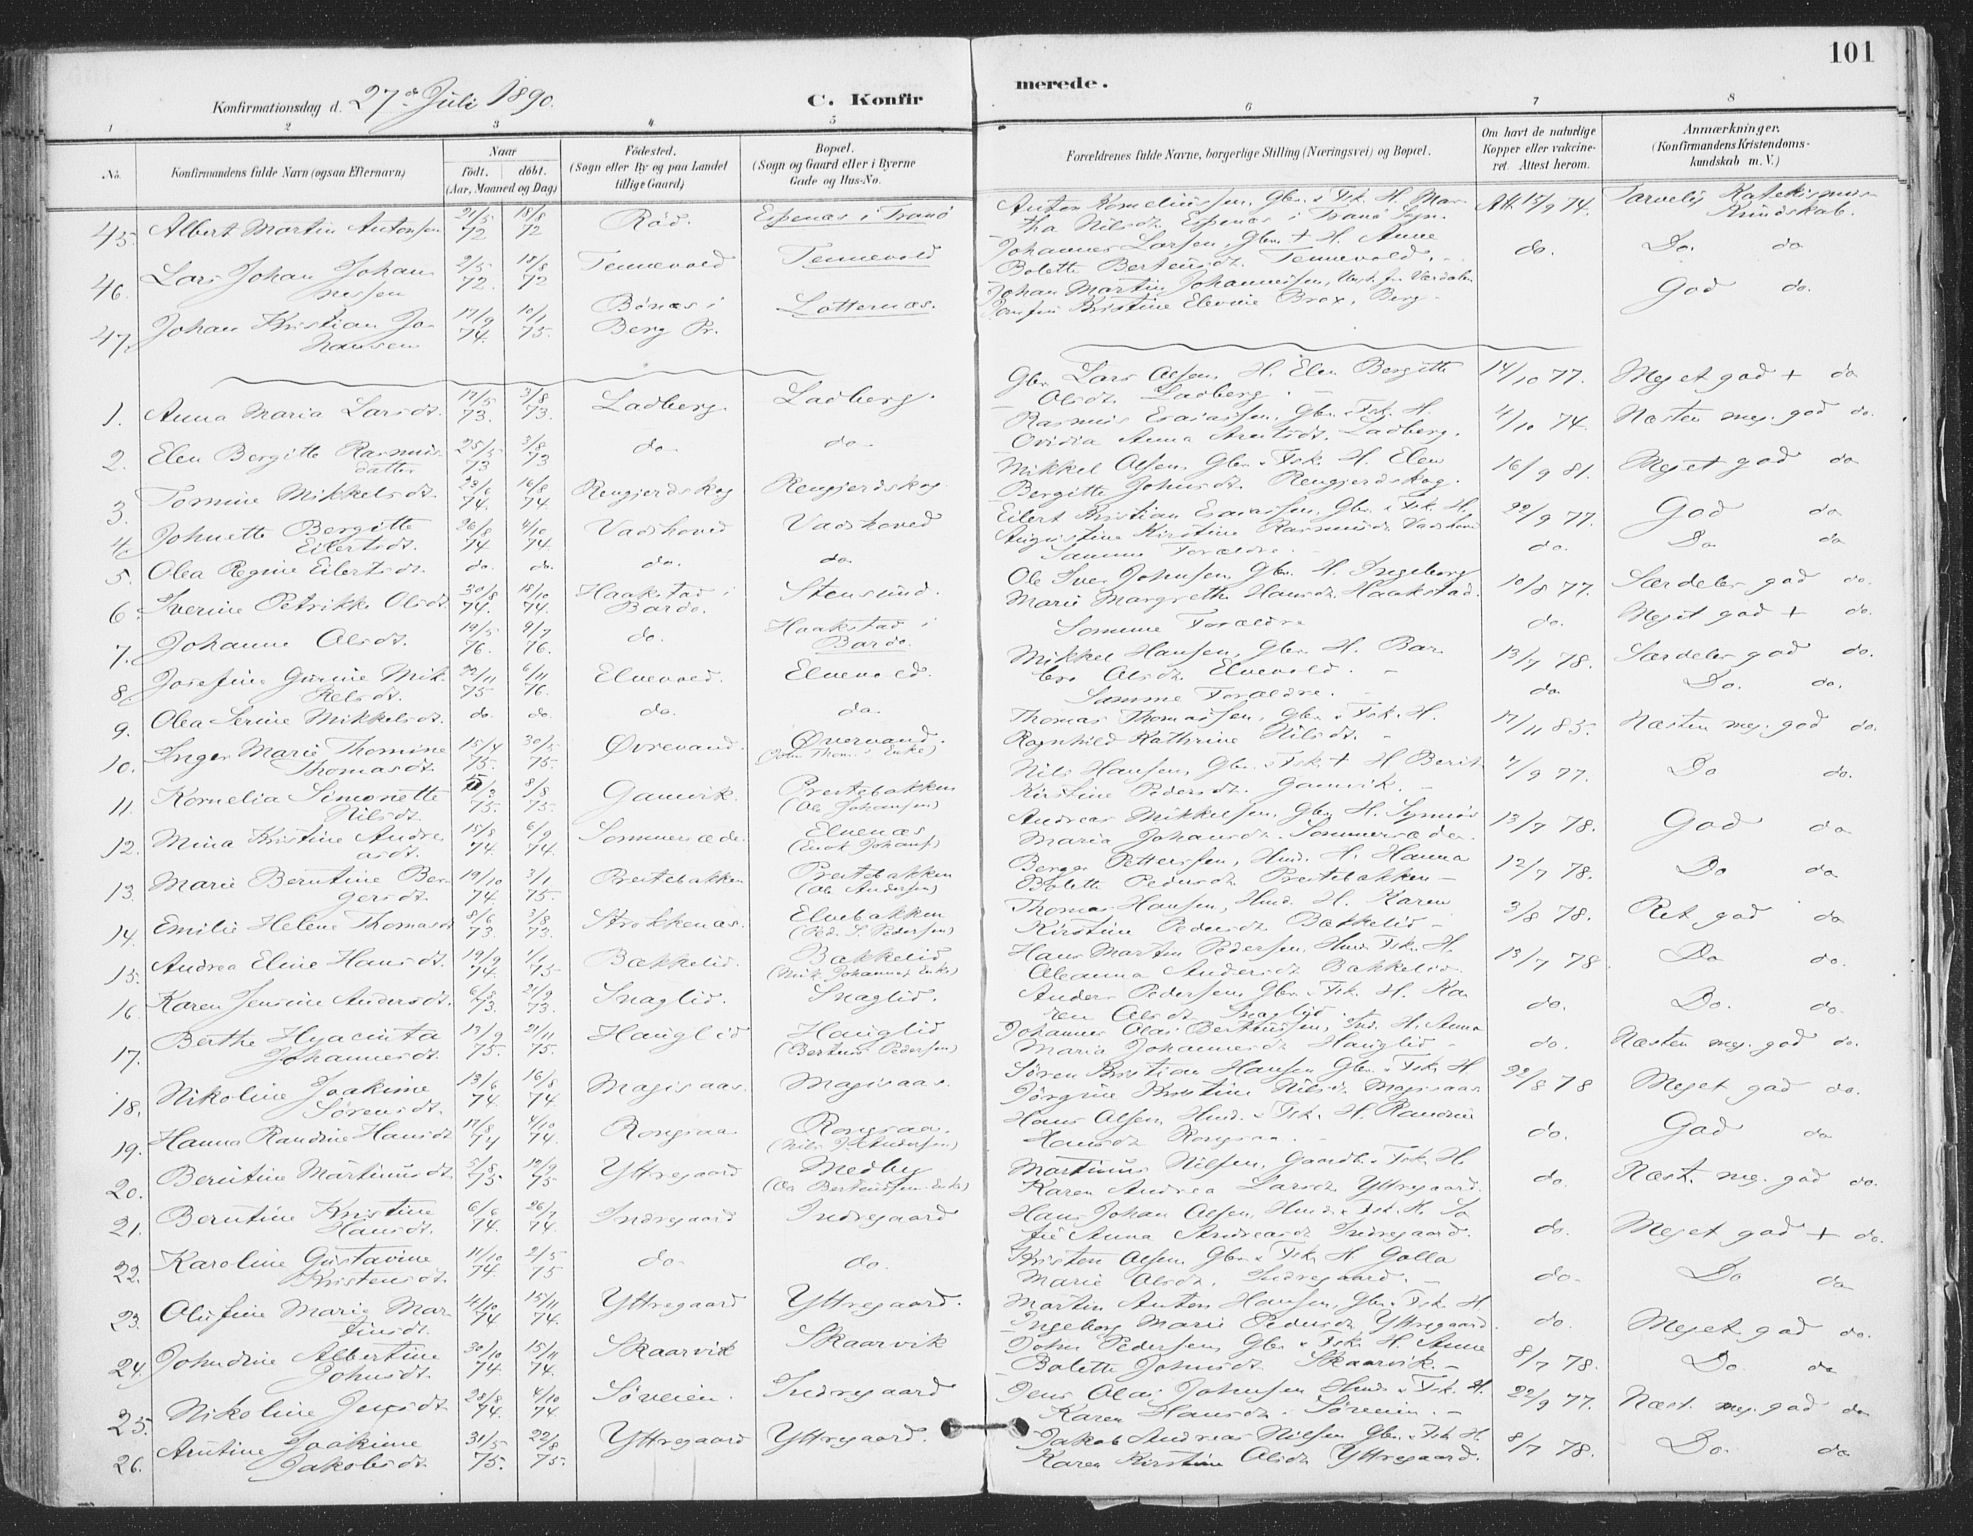 101
Konfirmationsdag d. 27de Juli 1890.
C. Konfir
merede.
1 2 3 4 5 6 7 8
No. Konfirmandens fulde Navn (ogsaa Efternavn) Naar Födt. döbt. (Aar, Maaned og Dag) Födested. (Sogn eller By og paa Landet tillige Gaard) Bopæl. (Sogn og Gaard eller i Byerne Gade og Hus-No. Forældrenes fulde Navne, borgerlige Stilling (Næringsvei) og Bopæl. Om havt de naturlige Kopper eller vakcineret. Attest herom. Anmærkninger. (Konfirmandens Kristendomskundskab m. V.)
45. Albert Martin Antonsen 21/5 72 18/8 72 Röd. Espenæs i Tranö Anton Korneliussen, Gbr. & Fsk. H. Martha Nilsdt. Espenæs i Tranö Sogn. Att. 15/9 74. Tarvelig Katekismuskundskab.
46. Lars Johan Johannessen 2/5 72. 18/8 72 Tennevold Tennevold Johannes Larsen, Gbr. + H. Anne Bolette Berteusdt. Tennevold. do. Do. do
47. Johan Kristian Johansen 17/9 74. 10/1 75. Bönæs i Berg Pr. Lotternæs. Johan Martin Johannessen, Kristine Elevine Brox, Berg. God do.
1. Anna Maria Larsdt. 17/5 73. 3/8 73. Ladberg. Ladberg. Gbr. Lars Olsen, H. Elen Bergitte Olsdt. Ladberg. 14/10 77. Meget god + do
2. Elen Bergitte Rasmusdatter 25/5 73 3/8 73 do. do. Rasmus Esaiassen, Gbr. & Fsk. H. Ovidia Anna Arntsdt. Ladberg. 4/10 74. Næsten meg. god do.
3. Tomine Mikkelsdt. 23/6 74. 16/8 74. Rengjerdskog Rengjerdskog Mikkel Olsen, Gbr. & Fsk. H. Elen Bergitte Johnsdt. Rengjerdskog. 16/9 81. Meget god do
4. Johnette Bergitte Eilertsdt. 26/8 74. 4/10 74. Vadshoved Vadshoved Eilert Kristian Esaiassen, Gbr. & Fsk. H. Augustine Kirstine Rasmusdt. Vadshoved 22/9 77. God do
5. Olea Regine Eilertsdt. do. do. do. do. Samme Forældre. do. Do do
6. Iverine Petrikke Olsdt. 30/8 74. 18/10 74. Haakstad i Bardo. Stensund. Ole Iver Johnsen, Gbr. H. Ingeborg Marie Margrethe Hansdt. Haakstad. 10/8 77. Særdeles god do.
7. Johanne Olsdt. 19/5 76. 9/7 76. do. Haakstad i Bardo Samme Forældre do. Meget god + do.
8. Josefine Gurine Mikkelsdt. 22/11 75 6/11 76. Elvevold. Elvevold. Mikkel Hansen, Gbr. H. Bar. Olsdt. Elvevold. 13/7 78. Særdeles god do.
9. Olea Serine Mikkelsdt. do. do. do. do. Samme Forældre. do Do. do.
10. Inger Marie Thomine Thomasdt. 15/4 75. 30/5 75. Øvrevand. Øvervand. Thomas Thomassen, Gbr. & Fsk. H. Ragnhild Kathrine Nilsdt. 17/11 85. Næsten meg. god do.
11. Kornelia Simonette Nilsdt. 5/3 75. 8/8 75. Gamvik. Prestebakken (Ole Johansen) Nils Hansen, Gbr. & Fsk. + H Berit Kirstine Pedersdt. Gamvik. 7/9 77. Do do.
12. Mina Kristine Andreasdt. 15/8 74. 6/9 74. Sommersæde. Elvenæs (Enok Johans.) Andreas Mikkelsen, Gbr. H. Maria Johansdt. Sommersæde. 13/7 78. God do
13. Marie Berntine Bergersdt. 19/10 74. 3/1 75. Prestebakken Prestebakken (Ole Andersen) Berger Pettersen, Hmd. H. Hanna Bolette Pedersdt Prestebakken 12/7 78. Do do
14. Emilie Helene Thomasdt 8/6 73. 3/8 73. Strokkenæs. Elvebakken (Ped. S. Pedersen) Thomas Hansen, Hmd. H. Karen Kirstine Pedersdt Bækkelid 3/8 78. Ret god do
15. Andrea Eline Hansdt. 19/9 74. 1/1 75 Bækkelid. Bækkelid (Mik. Johannes. Enke) Hans Martin Pedersen, Hmd. Fsk. H. Oleanna Andersdt Bækkelid. 13/7 78. Do do.
16. Karen Jensine Andersdt. 6/8 73. 21/9 73. Snaglid. Snaglid. Anders Pedersen, Gbr. & Fsk. H. Karen Olsdt Snaglid. do. Do. do.
17. Berthe Hyacinta Johannesdt. 13/9 75. 21/11 75. Hauglid Hauglid (Berteus Pedersen) Johannes Olai Berteussen, Ind. H. Anna Maria Johannesdt Hauglid do. Næsten meg. god do.
18. Nikoline Joakime Sörensdt. 13/6 74. 16/8 74. Magisaas. Magisaas. Sören Kristian Hansen Gbr. & Fsk. H Jörgine Kristine Nilsdt. Magisaas 22/8 78 Meget god do.
19. Hanna Randine Hansdt 11/8 74 4/10 74. Rongsaa Rongsaa. (Nils J. Andersen) Hans Olsen, Hmd. & Fsk. H. Randine Hansdt Rongsaa. do. God do
20. Berntine Martinusdt. 5/8 75. 19/9 75 Yttregaard Medby (Ole Berteussen. Enke) Martinus Nilsen, Gaardb. & Fsk. H. Karen Andrea Larsdt. Yttregaard. do. Næst. meg. god do.
21. Berntine Kristine Hansdt. 6/6 74. 26/7 74. Indregaard Indregaard Hans Johan Olsen, Hmd. & Fsk. H. Sofie Anna Andreasdt. Indregaard. do. Meget god + do.
22. Karoline Gustavine Kristensdt. 11/10 74. 2/5 75 do. do. Kristen Olsen, Gbr. & Fsk. H. Golla Marie Olsdt. Indregaard. do. Do do
23. Olufine Marie Martinsdt. 4/10 74 15/11 74. Yttregaard Yttregaard. Martin Anton Hansen, Gbr. & Fsk. H. Ingeborg Marie Pedersdt. Yttregaard. do. Meget god do.
24. Johndine Albertine Johnsdt. 30/10 74 15/11 74. Skaarvik Skaarvik John Pedersen, Gbr. & Fsk. H. Anne Bolette Johnsdt Skaarvik. 8/7 78. Do. do
25. Nikoline Jensdt 28/8 74. 4/10 74. Söveien. Indregaard Jens Olai Johnsen Hmd. & Fsk. H. Karen Hansdt. Söveien. 22/9 77. Næst. meg. god do
26. Arntine Joakime Jakobsdt. 31/5 75. 22/8 75. Yttregaard Yttregaard. Jakob Andreas Nilsen Gbr. & Fsk. H. Karen Kirstine Olsdt Yttregaard. 8/7 78. Do. do